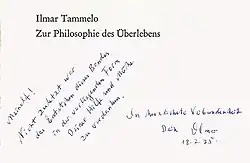 Ilmar Tammelo
Zur Philosophie des Überlebens
Meinhof!
Nicht zuletzt war
das Entstehen dieses Bandes
in der vorliegenden Form
Deiner Hilfe und Mühe
zu verdanken.
In herzlichster Verbundenheit
Dein Ilmar
18.2.75